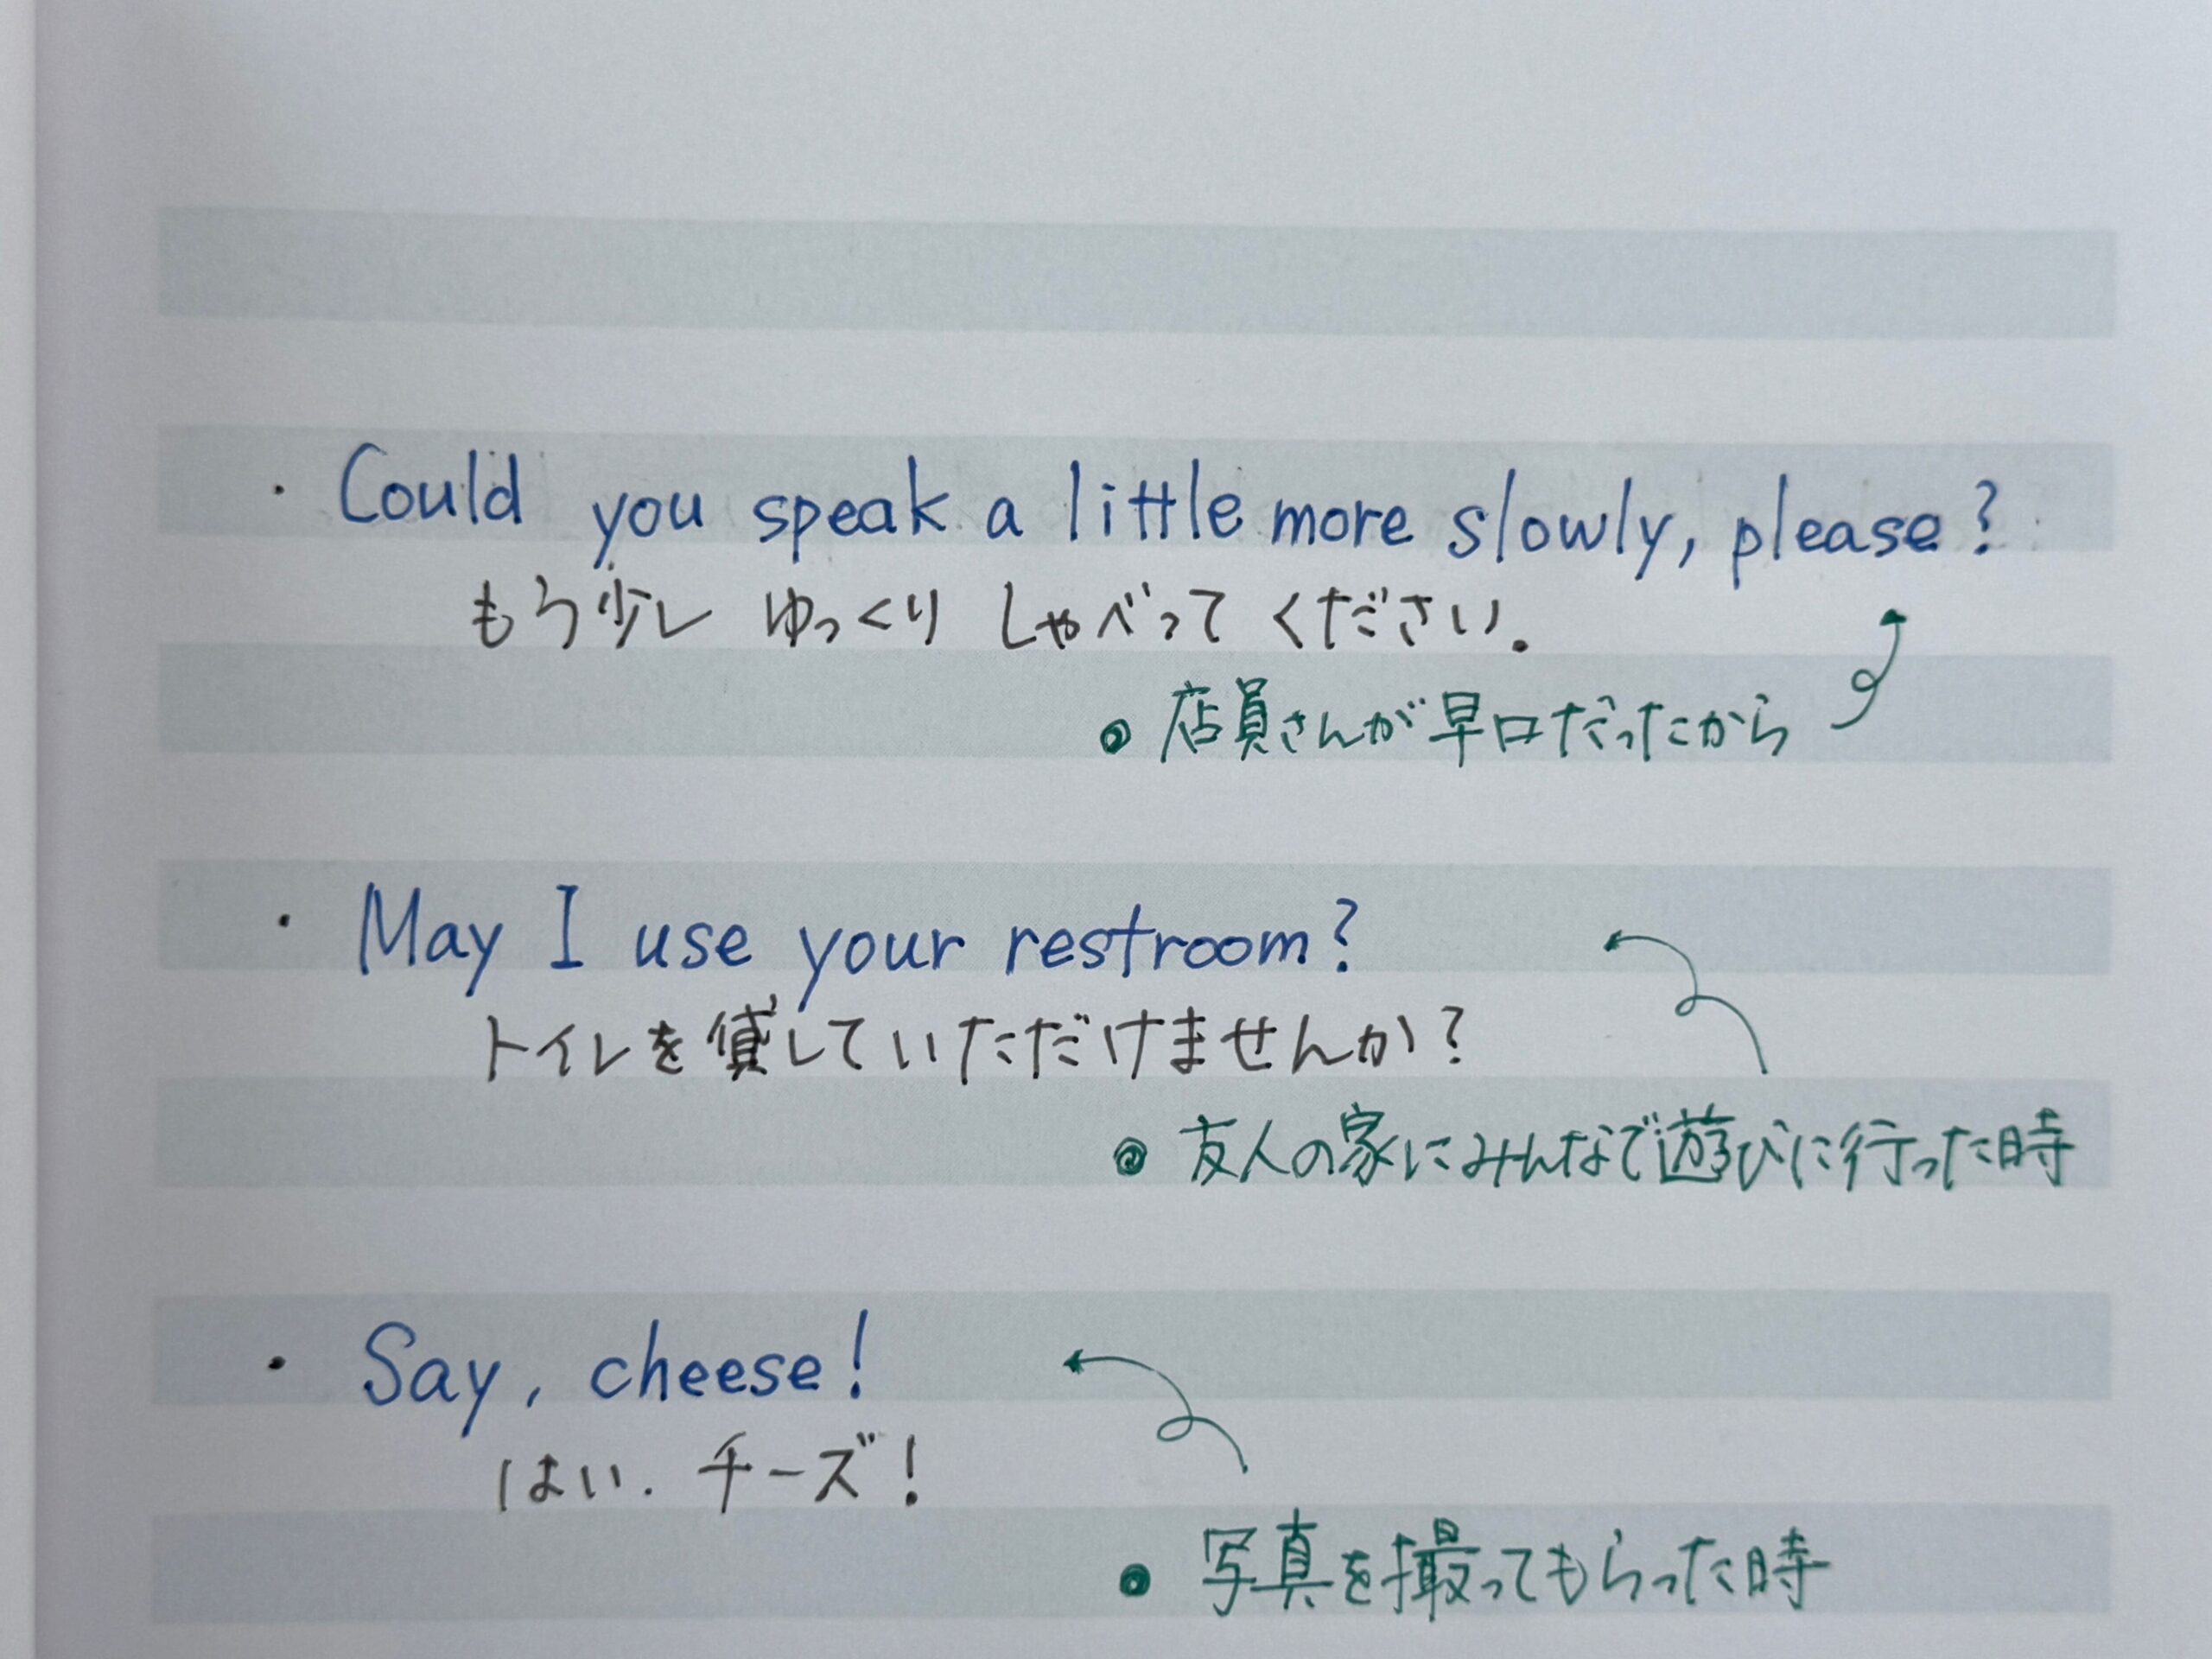 ・ Could you speak a little more slowly, please?
もう少し ゆっくり しゃべって ください。
● 店員さんが早口だったから
・ May I use your restroom?
トイレを貸していただけませんか?
● 友人の家にみんなで遊びに行った時
・ Say, cheese!
はい. チーズ!
● 写真を撮ってもらった時